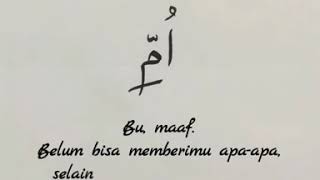 أُمّ
Bu, maaf.
Belum bisa memberimu apa-apa,
selain